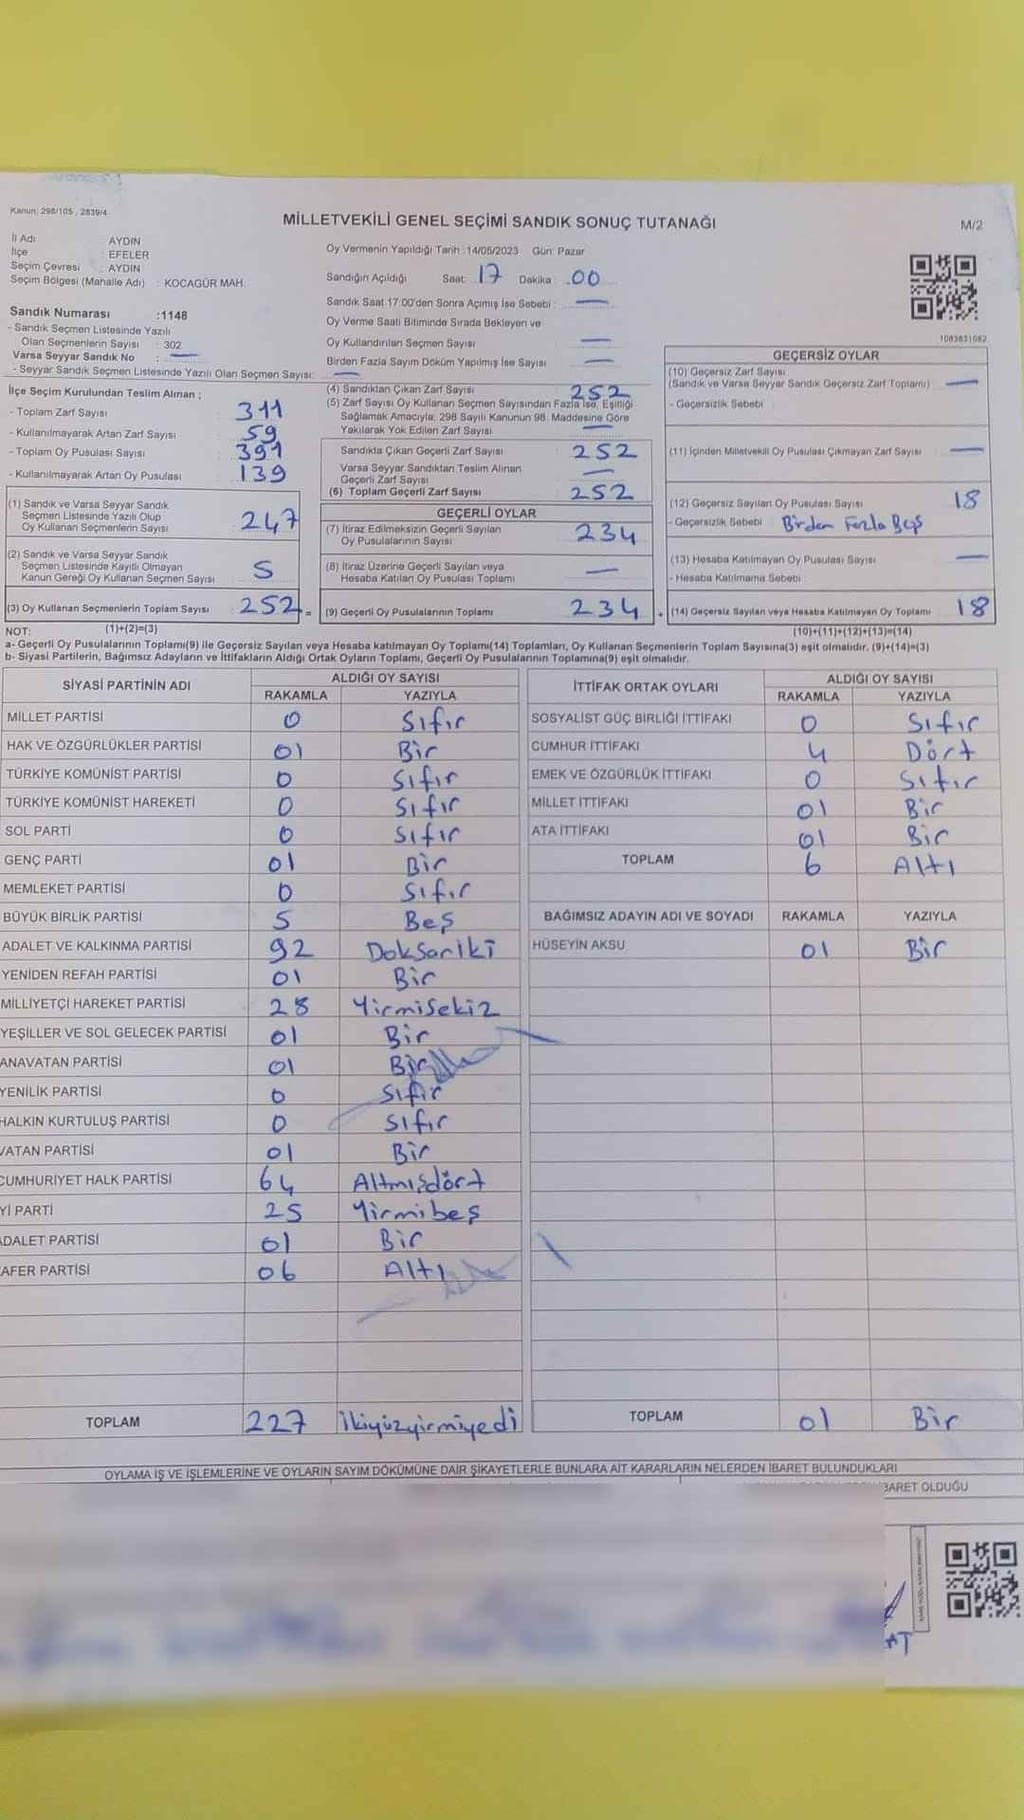 Kanun: 298/105 , 2839/4
MİLLETVEKİLİ GENEL SEÇİMİ SANDIK SONUÇ TUTANAĞI
M/2
İl Adı AYDIN
İlçe EFELER
Seçim Çevresi : AYDIN
Seçim Bölgesi (Mahalle Adı) : KOCAGÜR MAH.
Sandık Numarası :1148
- Sandık Seçmen Listesinde Yazılı
Olan Seçmenlerin Sayısı : 302
Varsa Seyyar Sandık No : —
- Seyyar Sandık Seçmen Listesinde Yazılı Olan Seçmen Sayısı: —
İlçe Seçim Kurulundan Teslim Alınan ;
- Toplam Zarf Sayısı 311
- Kullanılmayarak Artan Zarf Sayısı 59
- Toplam Oy Pusulası Sayısı 391
- Kullanılmayarak Artan Oy Pusulası 139
(1) Sandık ve Varsa Seyyar Sandık
Seçmen Listesinde Yazılı Olup
Oy Kullanan Seçmenlerin Sayısı 247
(2) Sandık ve Varsa Seyyar Sandık
Seçmen Listesinde Kayıtlı Olmayan
Kanun Gereği Oy Kullanan Seçmen Sayısı 5
(3) Oy Kullanan Seçmenlerin Toplam Sayısı 252 =
Oy Vermenin Yapıldığı Tarih :14/05/2023 Gün: Pazar
Sandığın Açıldığı Saat: 17 Dakika :00
Sandık Saat 17:00'den Sonra Açımış İse Sebebi : —
Oy Verme Saati Bitiminde Sırada Bekleyen ve
Oy Kullandırılan Seçmen Sayısı —
Birden Fazla Sayım Döküm Yapılmış İse Sayısı —
(4) Sandıktan Çıkan Zarf Sayısı 252
(5) Zarf Sayısı Oy Kullanan Seçmen Sayısından Fazla İse, Eşitliği
Sağlamak Amacıyla; 298 Sayılı Kanunun 98. Maddesine Göre
Yakılarak Yok Edilen Zarf Sayısı —
Sandıkta Çıkan Geçerli Zarf Sayısı 252
Varsa Seyyar Sandıktan Teslim Alınan
Geçerli Zarf Sayısı —
(6) Toplam Geçerli Zarf Sayısı 252
GEÇERLİ OYLAR
(7) İtiraz Edilmeksizin Geçerli Sayılan
Oy Pusulalarının Sayısı 234
(8) İtiraz Üzerine Geçerli Sayılan veya
Hesaba Katılan Oy Pusulası Toplamı —
(9) Geçerli Oy Pusulalarının Toplamı 234 +
1083831082
GEÇERSİZ OYLAR
(10) Geçersiz Zarf Sayısı
(Sandık ve Varsa Seyyar Sandık Geçersiz Zarf Toplamı) —
- Geçersizlik Sebebi
(11) İçinden Milletvekili Oy Pusulası Çıkmayan Zarf Sayısı —
(12) Geçersiz Sayılan Oy Pusulası Sayısı 18
- Geçersizlik Sebebi Birden Fazla Beş
(13) Hesaba Katılmayan Oy Pusulası Sayısı —
- Hesaba Katılmama Sebebi
(14) Geçersiz Sayılan veya Hesaba Katılmayan Oy Toplamı 18
NOT: (1)+(2)=(3) (10)+(11)+(12)+(13)=(14)
a- Geçerli Oy Pusulalarının Toplamı(9) ile Geçersiz Sayılan veya Hesaba katılmayan Oy Toplamı(14) Toplamları, Oy Kullanan Seçmenlerin Toplam Sayısına(3) eşit olmalıdır. (9)+(14)=(3)
b- Siyasi Partilerin, Bağımsız Adayların ve İttifakların Aldığı Ortak Oyların Toplamı, Geçerli Oy Pusulalarının Toplamına(9) eşit olmalıdır.
SİYASİ PARTİNİN ADI ALDIĞI OY SAYISI
RAKAMLA YAZIYLA
MİLLET PARTİSİ 0 Sıfır
HAK VE ÖZGÜRLÜKLER PARTİSİ 01 Bir
TÜRKİYE KOMÜNİST PARTİSİ 0 Sıfır
TÜRKİYE KOMÜNİST HAREKETİ 0 Sıfır
SOL PARTİ 0 Sıfır
GENÇ PARTİ 01 Bir
MEMLEKET PARTİSİ 0 Sıfır
BÜYÜK BİRLİK PARTİSİ 5 Beş
ADALET VE KALKINMA PARTİSİ 92 Doksaniki
YENİDEN REFAH PARTİSİ 01 Bir
MİLLİYETÇİ HAREKET PARTİSİ 28 Yirmisekiz
YEŞİLLER VE SOL GELECEK PARTİSİ 01 Bir
ANAVATAN PARTİSİ 01 Bir
YENİLİK PARTİSİ 0 Sıfır
HALKIN KURTULUŞ PARTİSİ 0 Sıfır
VATAN PARTİSİ 01 Bir
CUMHURİYET HALK PARTİSİ 64 Altmışdört
Yİ PARTİ 25 Yirmibeş
ADALET PARTİSİ 01 Bir
AFER PARTİSİ 06 Altı
TOPLAM 227 İkiyüzyirmiyedi
İTTİFAK ORTAK OYLARI ALDIĞI OY SAYISI
RAKAMLA YAZIYLA
SOSYALİST GÜÇ BİRLİĞİ İTTİFAKI 0 Sıfır
CUMHUR İTTİFAKI 4 Dört
EMEK VE ÖZGÜRLÜK İTTİFAKI 0 Sıfır
MİLLET İTTİFAKI 01 Bir
ATA İTTİFAKI 01 Bir
TOPLAM 6 Altı
BAĞIMSIZ ADAYIN ADI VE SOYADI RAKAMLA YAZIYLA
HÜSEYİN AKSU 01 Bir
TOPLAM 01 Bir
OYLAMA İŞ VE İŞLEMLERİNE VE OYLARIN SAYIM DÖKÜMÜNE DAİR ŞİKAYETLERLE BUNLARA AİT KARARLARIN NELERDEN İBARET BULUNDUKLARI
BARET OLDUĞU
AT